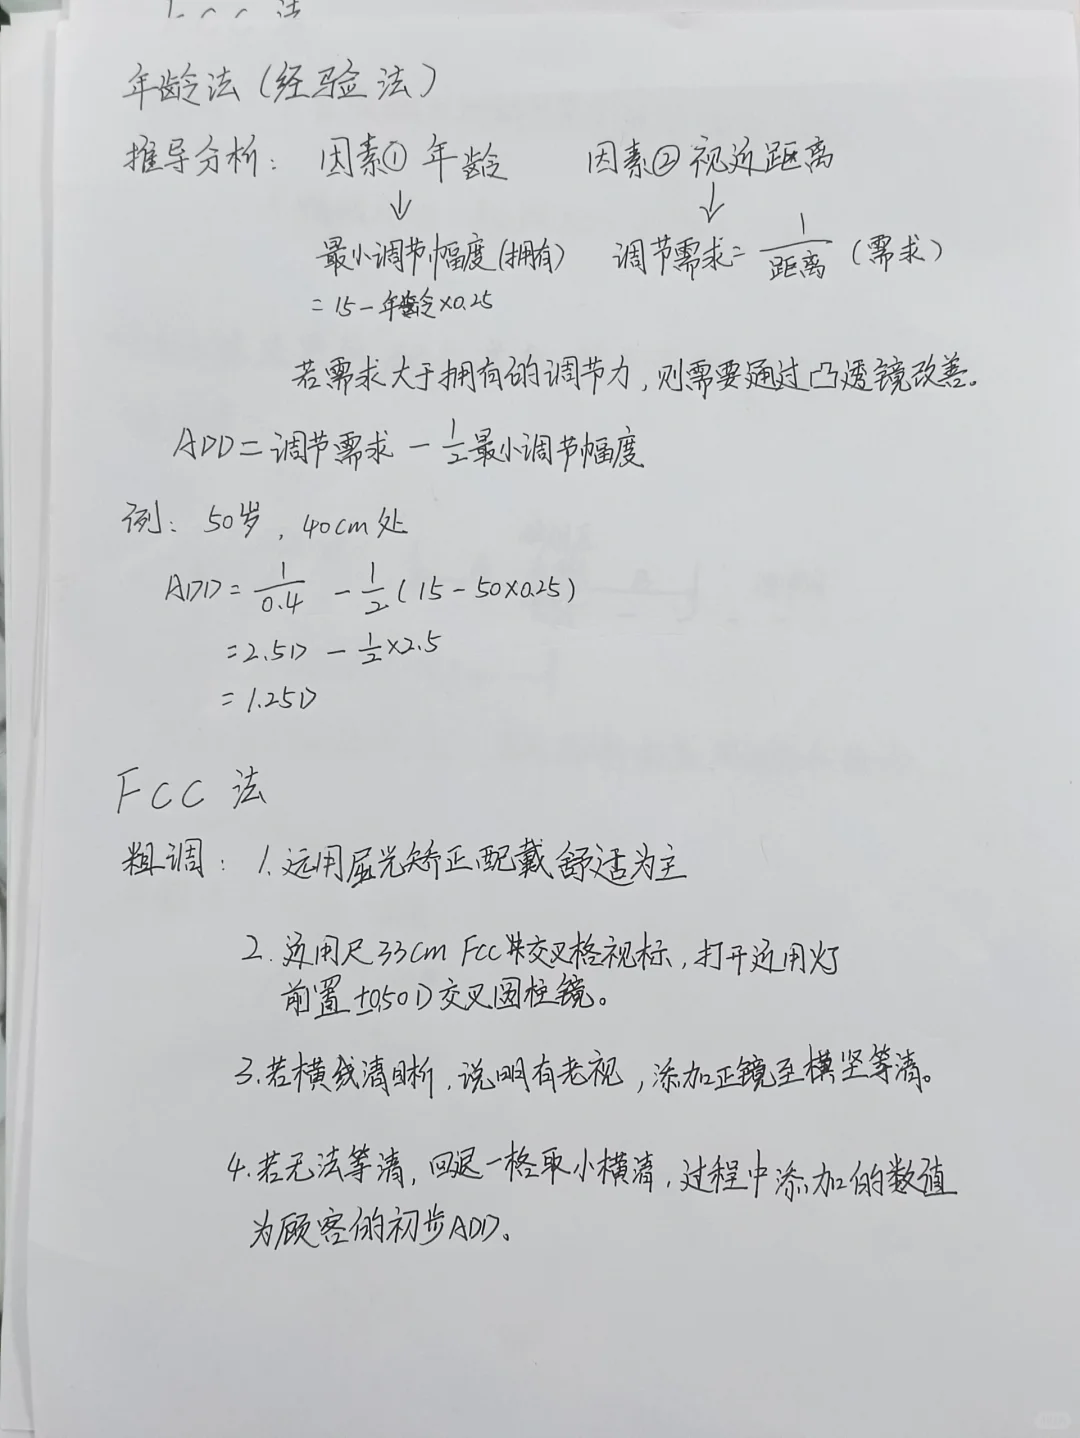 年龄法(经验法)
推导分析: 因素① 年龄 因素② 视近距离
↓ ↓
最小调节幅度(拥有) 调节需求=1/距离(需求)
=15-年龄×0.25
若需求大于拥有的调节力,则需要通过凸透镜改善。
ADD=调节需求-1/2最小调节幅度
例: 50岁,40cm处
ADD=1/0.4-1/2(15-50×0.25)
=2.5D-1/2×2.5
=1.25D
FCC 法
粗调: 1.远用屈光矫正配戴舒适为主
2.近用尺33cm Fcc井交叉格视标,打开近用灯
前置±0.50D交叉圆柱镜。
3.若横线清晰,说明有老视,添加正镜至横竖等清。
4.若无法等清,回退一格取小横清,过程中添加的数值
为顾客的初步ADD。